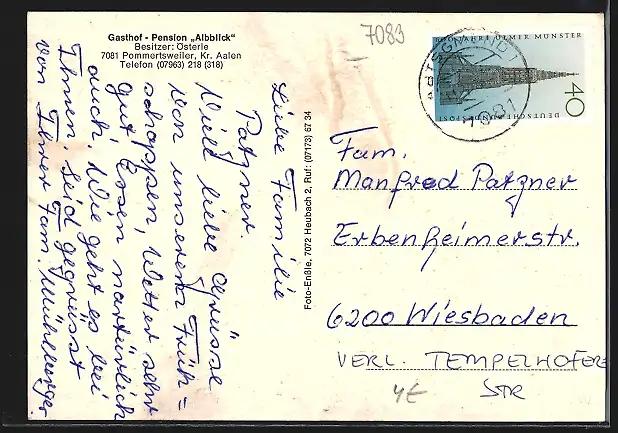 Gasthof - Pension „Albblick"
Besitzer: Österle
7081 Pommertsweiler, Kr. Aalen
Telefon (07963) 218 (318)
7083
500 JAHRE ULMER MÜNSTER
40
DEUTSCHE BUNDESPOST
Liebe Familie
Patzner.
Viele liebe Grüsse
von unserem Früh=
schoppen, Wetter sehr
gut, Essen natürlich
auch. Wie geht es bei
Ihnen. Seid gegrüsst
von Ihrer Fam. Mühlberger
Foto-Enßle, 7072 Heubach 2, Ruf: (07173) 67 34
Fam.
Manfred Patzner
Erbenheimerstr.
6200 Wiesbaden
VERL. TEMPELHOFER
STR
4€